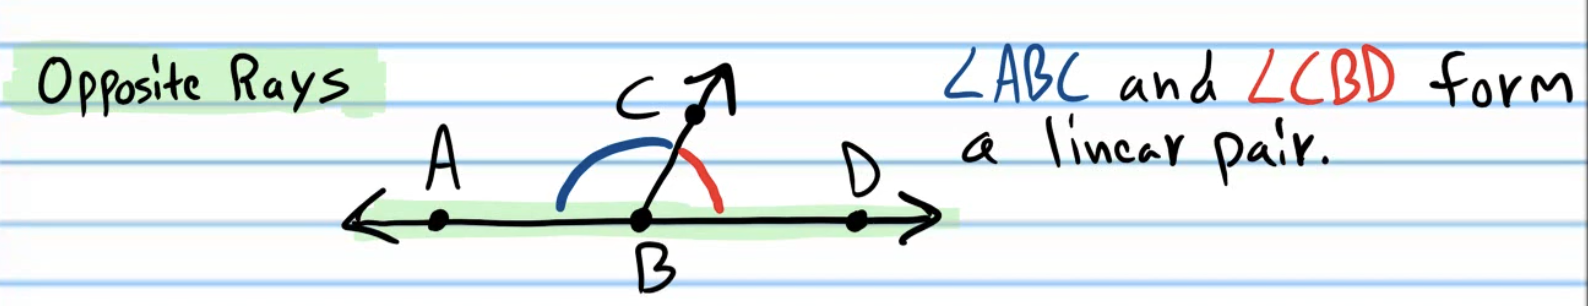 Opposite Rays
∠ABC and ∠CBD form
a linear pair.
C
A
D
B